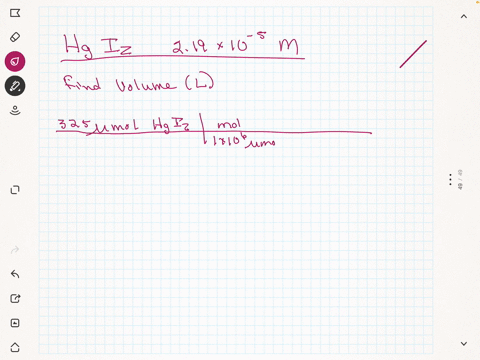 HgI₂ 2.19 × 10⁻⁵ M
Find Volume (L)
325 μmol HgI₂ | mol
1×10⁶ μmo